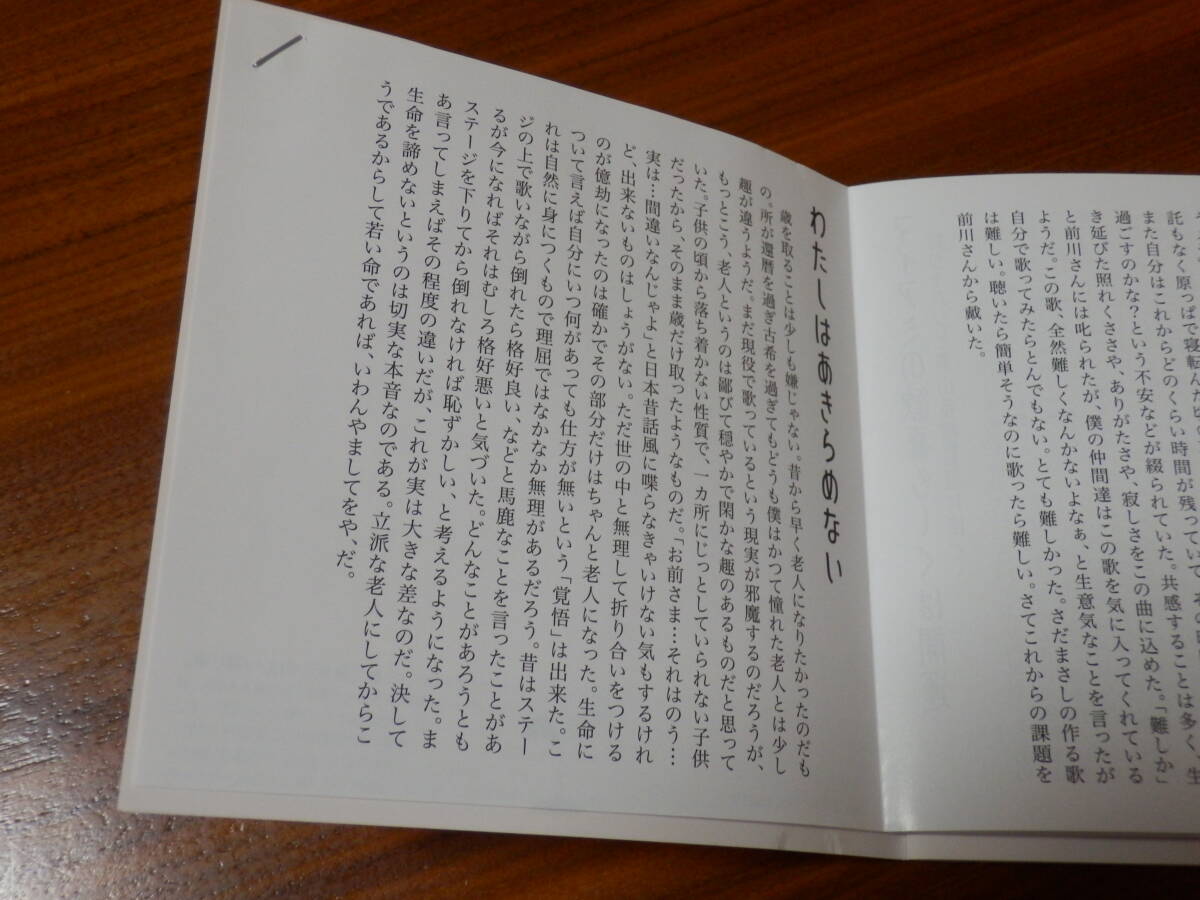 託もなく原っぱで寝転んだ
また自分はこれからどのくらい時間が残っていて、その
過ごすのかな?という不安などが綴られていた。共感することは多く、生
き延びた照れくささや、ありがたさや、寂しさをこの曲に込めた。「難しか」
と前川さんには叱られたが、僕の仲間達はこの歌を気に入ってくれている
ようだ。この歌、全然難しくなんかないよなぁ、と生意気なことを言ったが
自分で歌ってみたらとんでもない。とても難しかった。さだまさしの作る歌
は難しい。聴いたら簡単そうなのに歌ったら難しい。さてこれからの課題を
前川さんから戴いた。
わたしはあきらめない
歳を取ることは少しも嫌じゃない。昔から早く老人になりたかったのだも
の。所が還暦を過ぎ古希を過ぎてもどうも僕はかつて憧れた老人とは少し
趣が違うようだ。まだ現役で歌っているという現実が邪魔するのだろうが、
もっとこう、老人というのは鄙びて穏やかで閑かな趣のあるものだと思って
いた。子供の頃から落ち着かない性質で、一カ所にじっとしていられない子供
だったから、そのまま歳だけ取ったようなものだ。「お前さま…それはのう…
実は…間違いなんじゃよ」と日本昔話風に喋らなきゃいけない気もするけれ
ど、出来ないものはしょうがない。ただ世の中と無理して折り合いをつける
のが億劫になったのは確かでその部分だけはちゃんと老人になった。生命に
ついて言えば自分にいつ何があっても仕方が無いという「覚悟」は出来た。こ
れは自然に身につくもので理屈ではなかなか無理があるだろう。昔はステー
ジの上で歌いながら倒れたら格好良い、などと馬鹿なことを言ったことがあ
るが今になればそれはむしろ格好悪いと気づいた。どんなことがあろうとも
ステージを下りてから倒れなければ恥ずかしい、と考えるようになった。ま
あ言ってしまえばその程度の違いだが、これが実は大きな差なのだ。決して
生命を諦めないというのは切実な本音なのである。立派な老人にしてからこ
うであるからして若い命であれば、いわんやましてをや、だ。